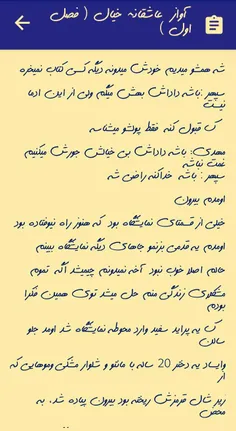 آواز عاشقانه خیال ( فصل
اول )
شه همشو میدیم خودش میدونه دیگه کسی کتاب نمیخره
سپهر :باشه داداش بهش میگم ولی از این ادما
نیست
ک قبول کنه فقط پولشو میشناسه
مهدی: باشه داداش بی خیالش جورش میکنیم
غمت نباشه
سپهر : باشه خداکنه راضی شه
اومدم بیرون
خیلی از قسمتای نمایشگاه بود که هنوز راه نیوفتاده بود
اومدم یه قدمی بزنمو جاهای دیگه نمایشگاه ببینم
حالم اصلا خوب نبود آخه نمیدونم چیمیشد اگه تموم
مشکلای زندگی منم حل میشد توی همین فکرا
بودم
ک یه پراید سفید وارد محوطه نمایشگاه شد اومد جلو
سالن
وایساد یه دختر 20 ساله با مانتو و شلوار مشکی وموهایی که
از
زیر شال قرمزش ریخته بود بیرون پیاده شد. به
محض